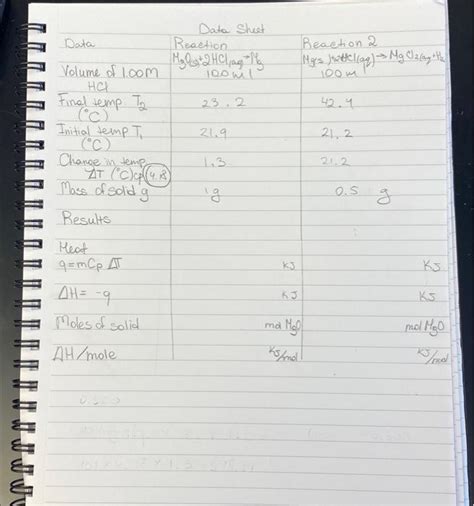 Data Sheet
Data Reaction Reaction 2
MgO(s)+2HCl(aq)→Mg
Mg(s) HCl(aq)→MgCl2(aq)+H2
Volume of 1.00M HCl 100ml 100ml
Final temp. T2 (°C) 23.2 42.4
Initial temp T1 (°C) 21.9 21.2
Change in temp ΔT (°C) Cp 4.18 1.3 21.2
Mass of solid g 1g 0.5 g
Results
Heat
q=mCp ΔT KJ KJ
ΔH= -q KJ KJ
Moles of solid mol MgO mol MgO
ΔH/mole KJ/mol KJ/mol